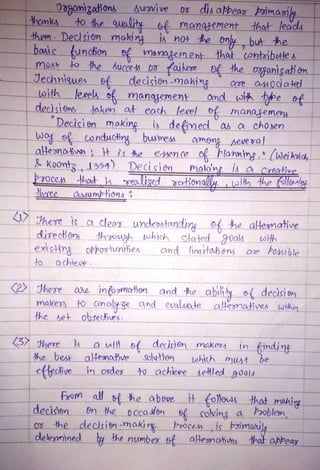 Organizations survive or disappear primarily
thanks to the quality of management that leads
them. Decision making is not the only, but the
basic function of management that contributes
most to the success or failure of the organization
Techniques of decision-making are associated
with levels of management and with type of
decisions taken at each level of management
"Decision making is defined as a chosen
way of conducting business among several
alternatives; it is the essence of planning." (Weihrich
& Koontz, 1994) Decision making is a creative
process that is realized rationally, with the following
three assumptions:
<1> There is a clear understanding of the alternative
direction through which stated goals with
existing opportunities and limitations are possible
to achieve.
<2> There are information and the ability of decision
makers to analyze and evaluate alternatives within
the set objectives.
<3> There is a will of decision makers in finding
the best alternative solution which must be
effective in order to achieve settled goals
From all of the above it follows that making
decision on the occasion of solving a problem,
or the decision-making process, is primarily
determined by the number of alternatives that appear